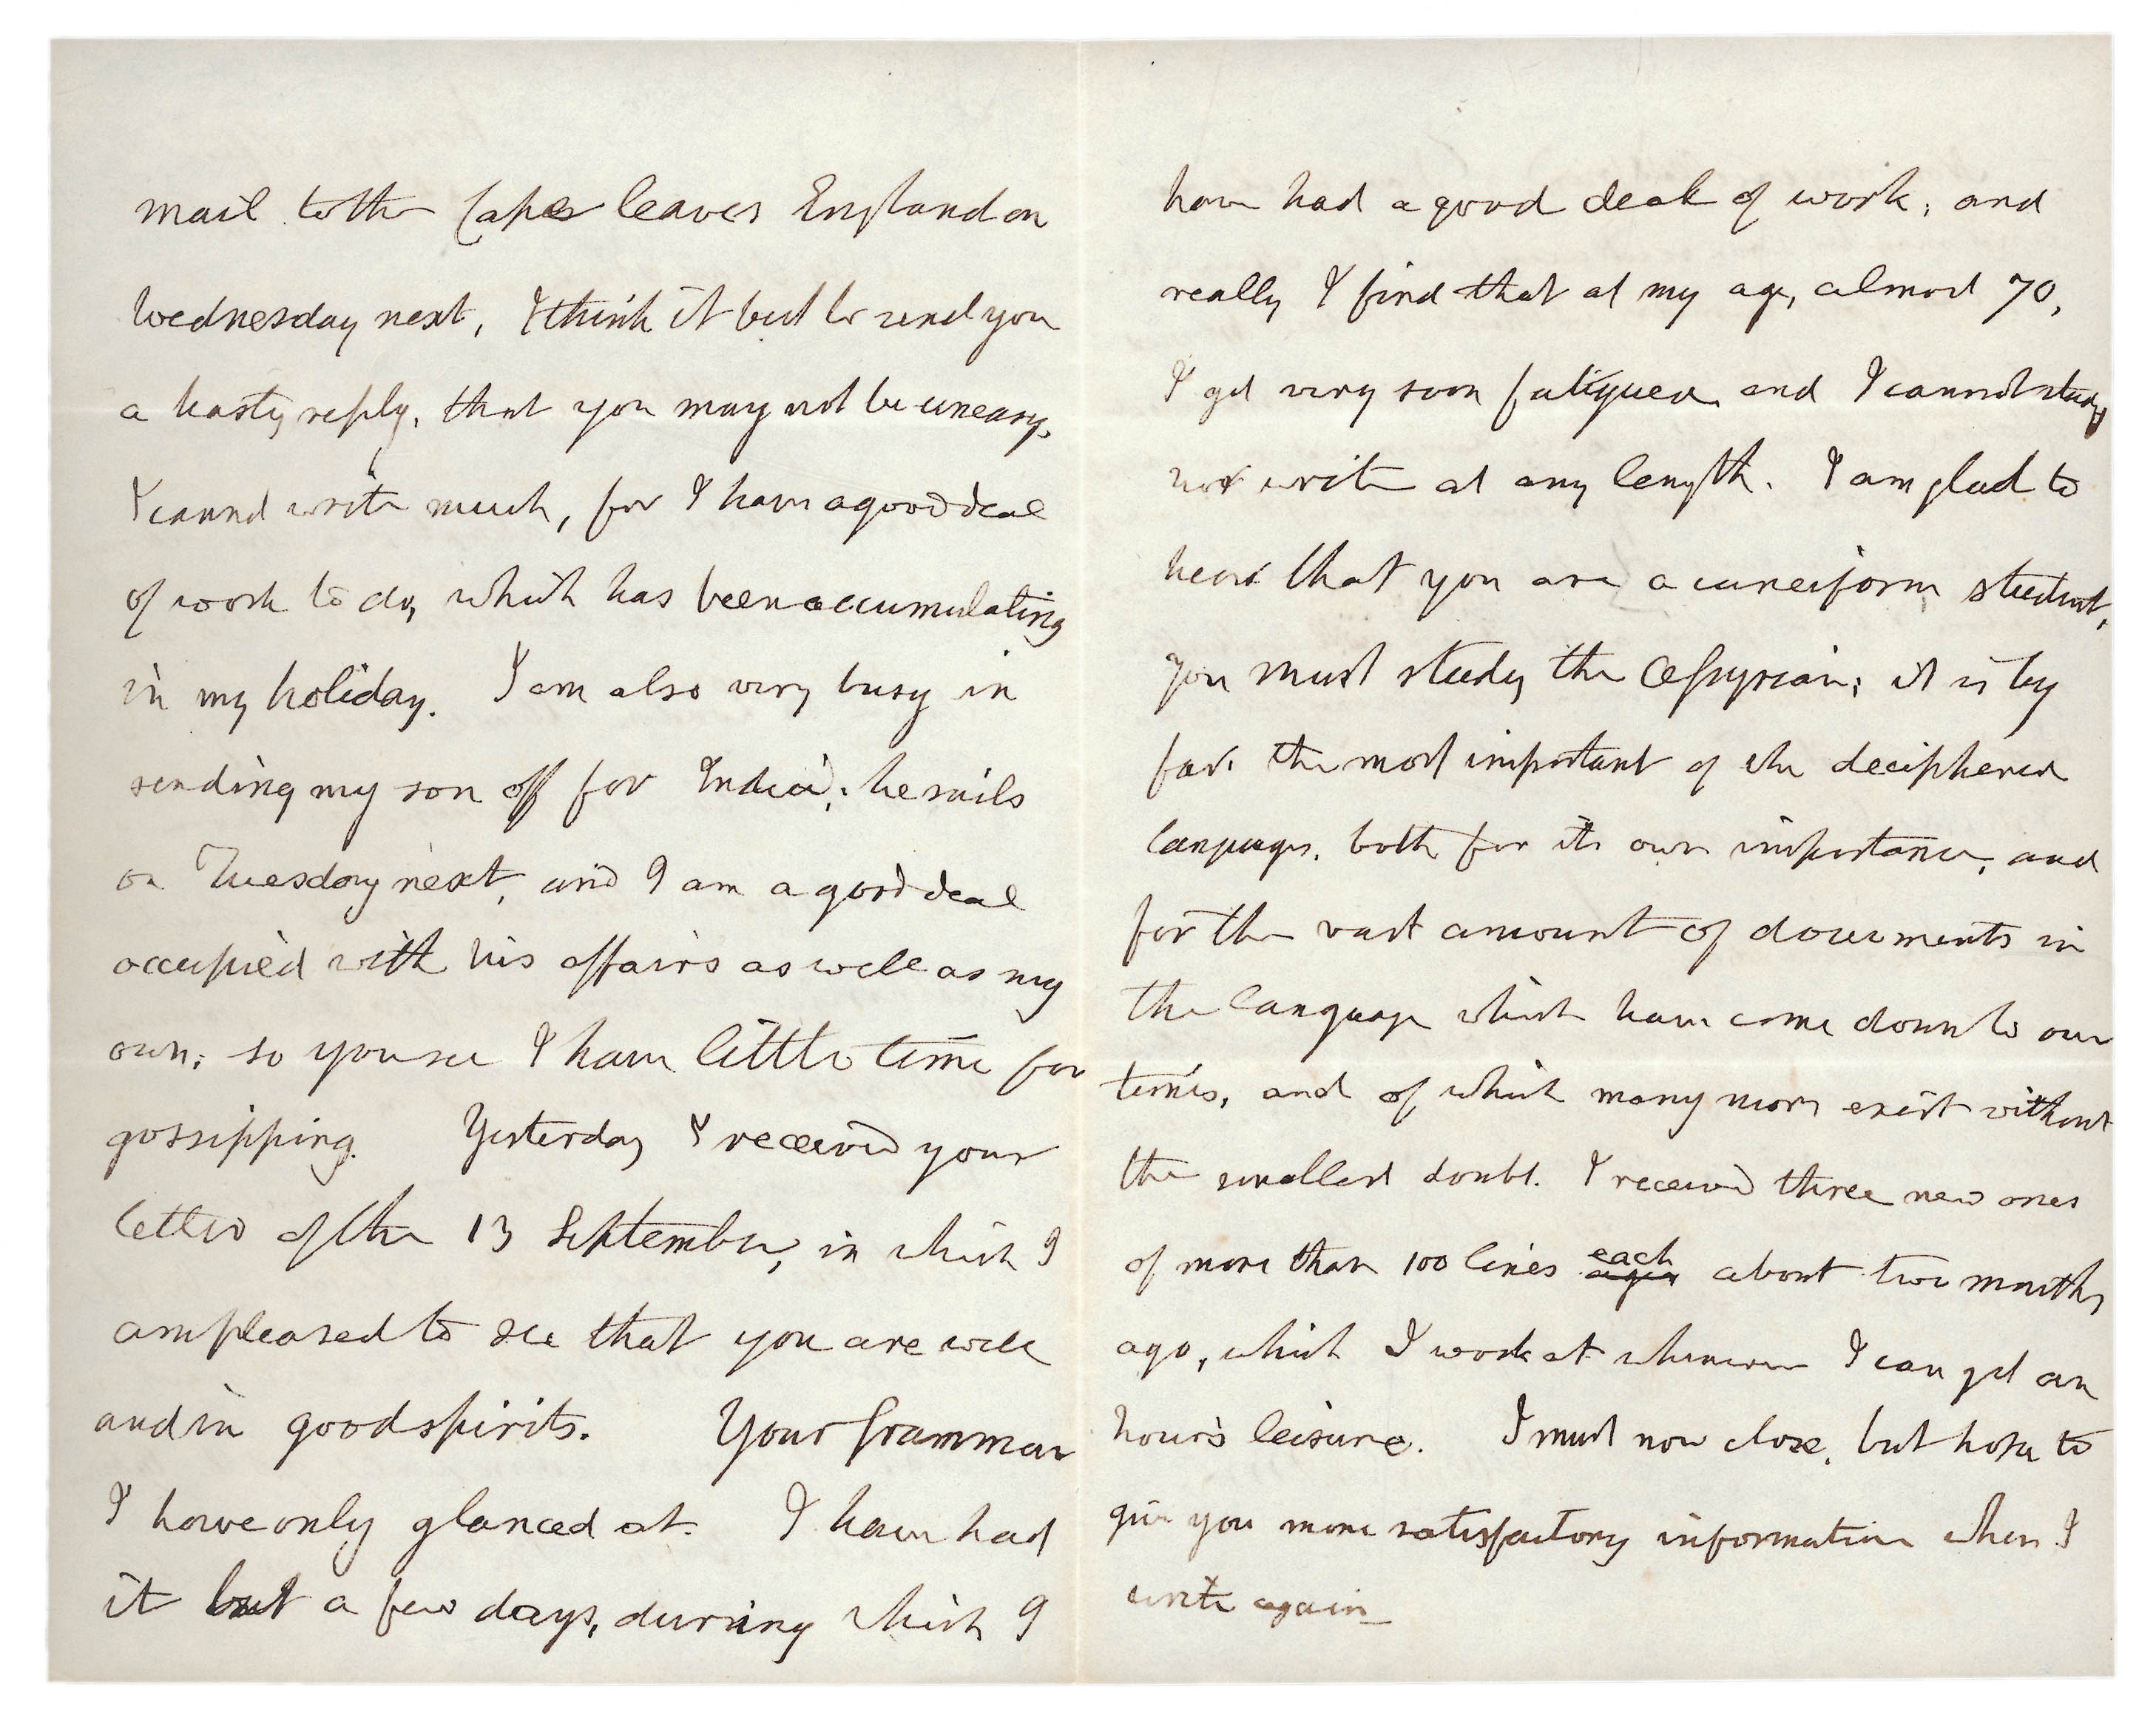 mail to the Cape leaves England on
Wednesday next, I think it best to send you
a hasty reply, that you may not be uneasy.
I cannot write much, for I have a good deal
of work to do, which has been accumulating
in my holiday. I am also very busy in
sending my son off for India; he sails
on Tuesday next, and I am a good deal
occupied with his affairs as well as my
own; so you see I have little time for
gossipping. Yesterday I received your
letter of the 13 September, in which I
am pleased to see that you are well
and in good spirits. Your Grammar
I have only glanced at. I have had
it but a few days, during which I
have had a good deal of work, and
really I find that at my age, almost 70,
I get very soon fatigued and I cannot study
nor write at any length. I am glad to
hear that you are a cuneiform student,
you must study the Assyrian; it is by
far the most important of the deciphered
languages, both for its own importance, and
for the vast amount of documents in
the language which have come down to our
times, and of which many more exist without
the smallest doubt. I received three new ones
of more than 100 lines each about two months
ago, which I work at whenever I can get an
hour's leisure. I must now close, but hope to
give you more satisfactory information when I
write again